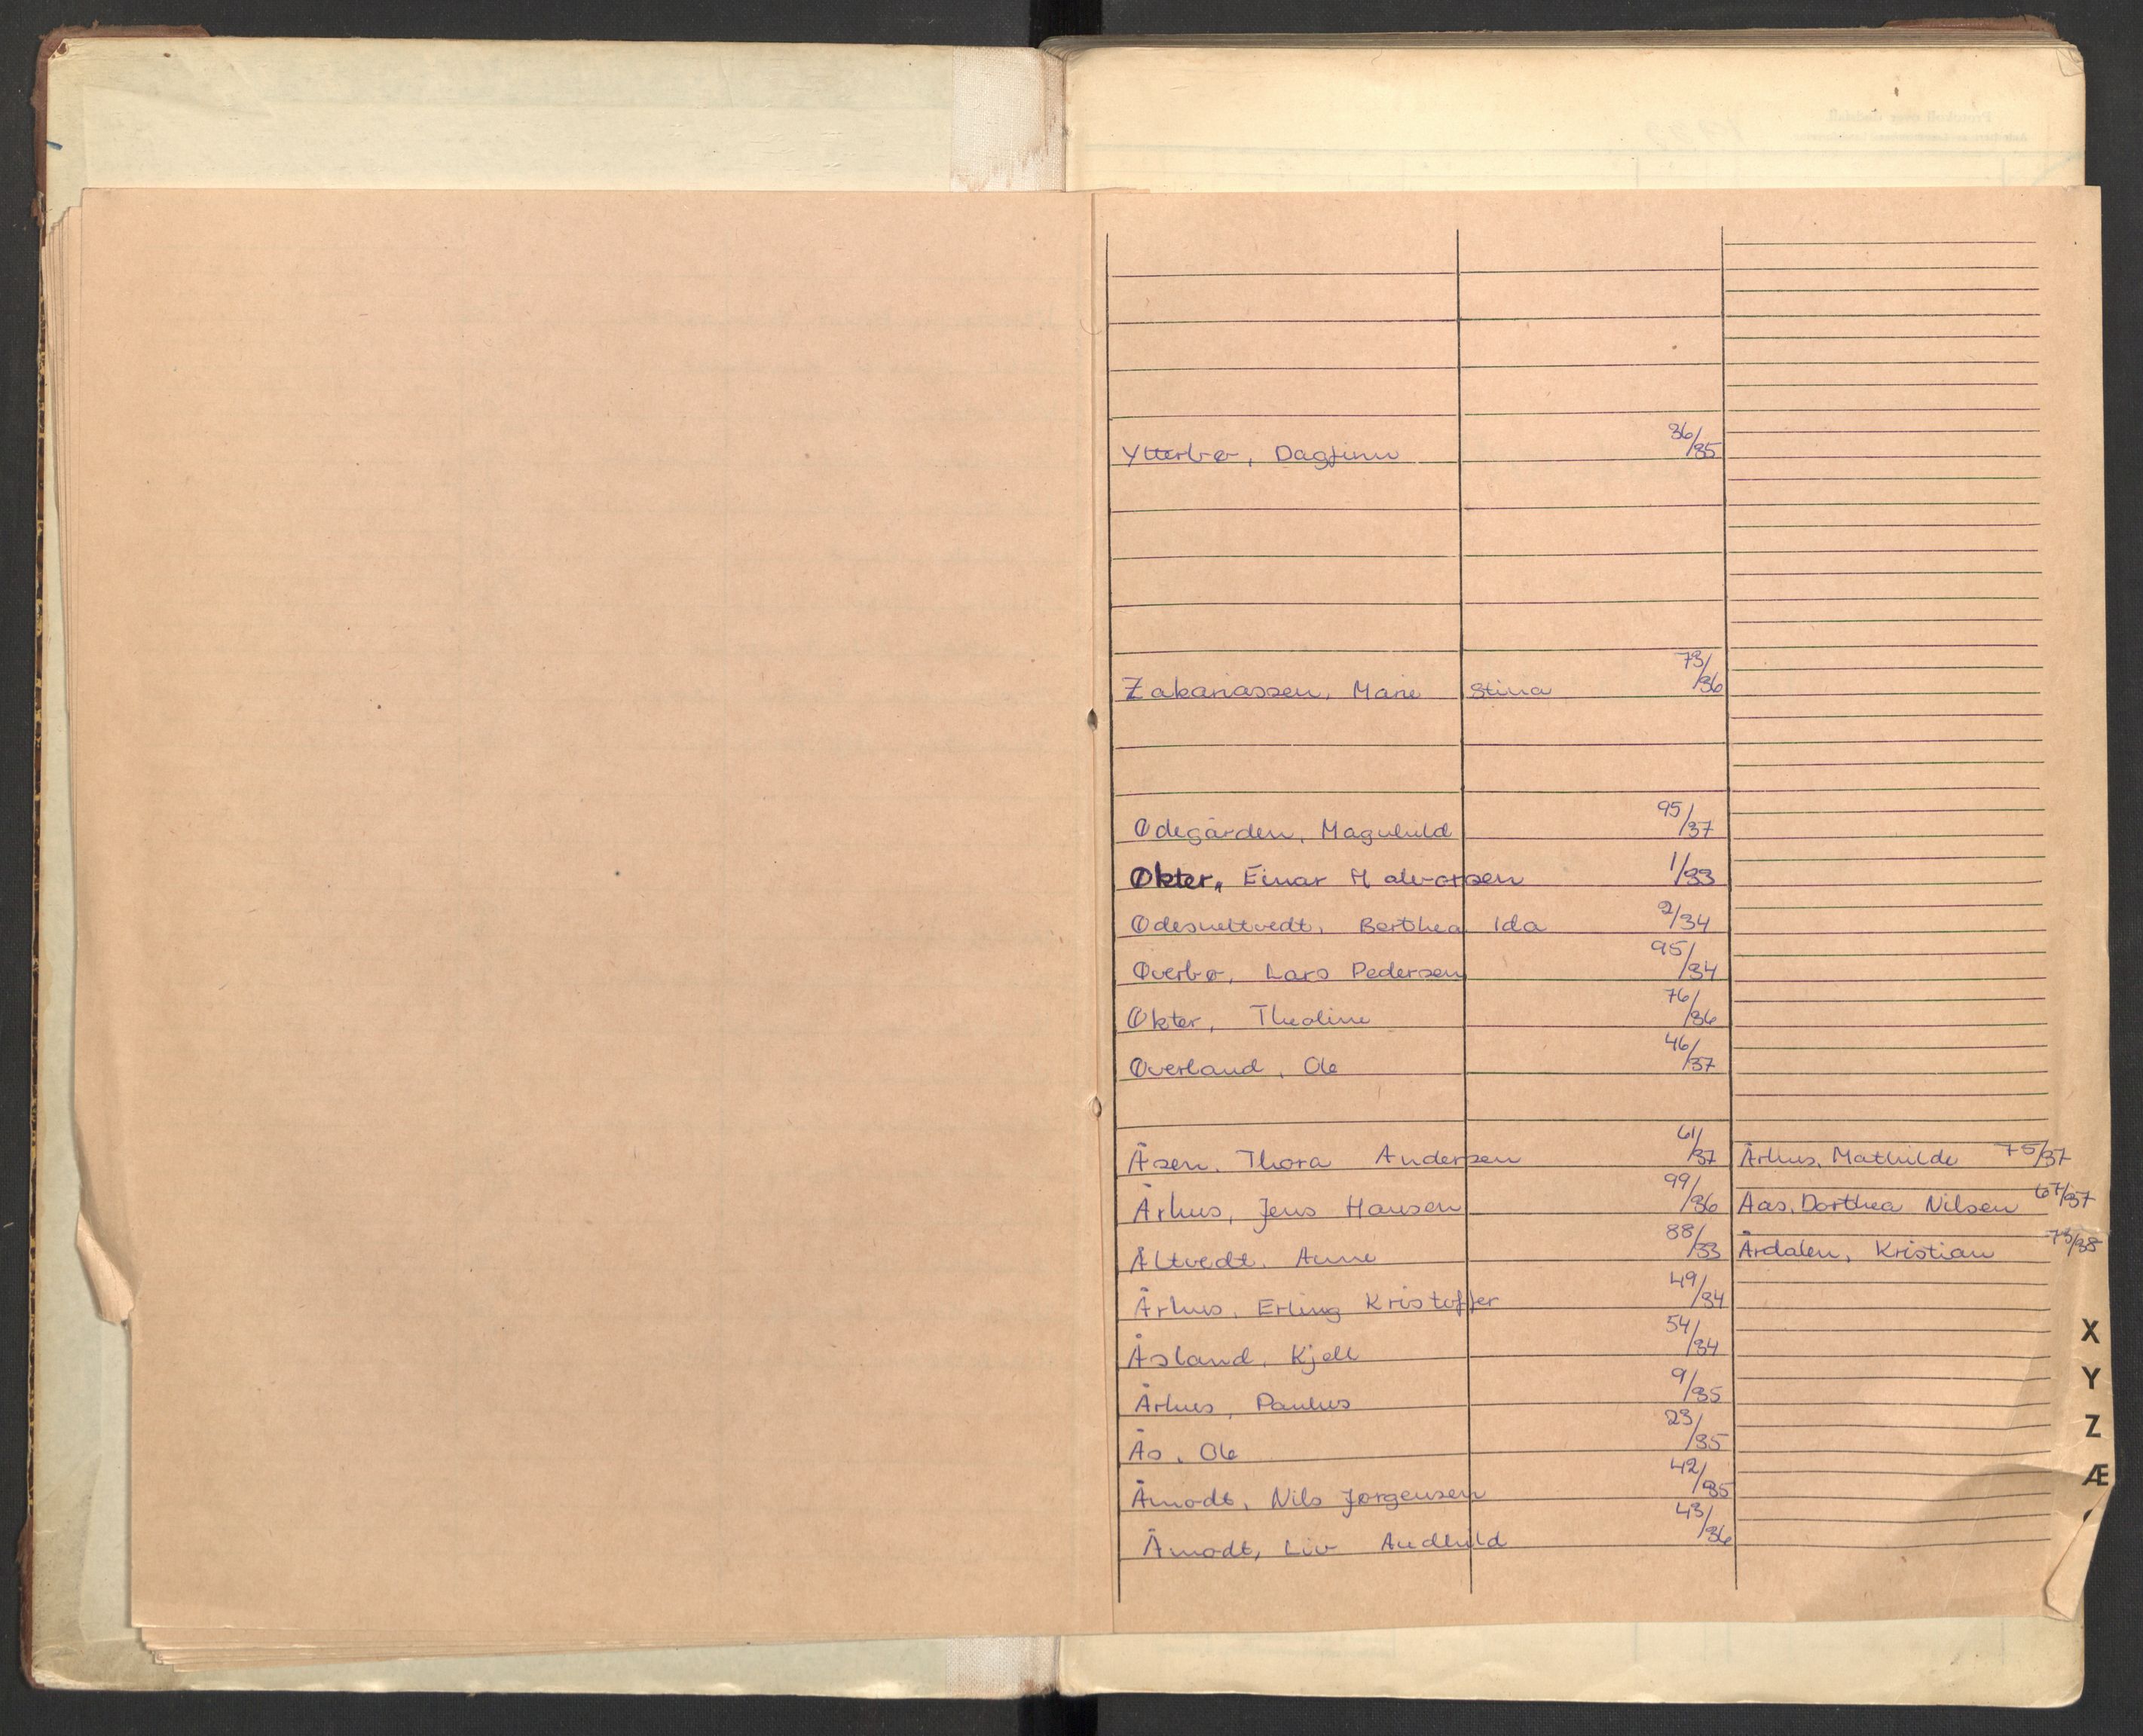 Ytterbø, Dagfinn 36/35
Zakariassen, Marie Stina 73/36
Ødegården, Magnhild 95/37
Økter, Einar Halvorsen 1/33
Ødesneltvedt, Berthea Ida 2/34
Øverbø, Lars Pedersen 95/34
Økter, Theoline 76/36
Øverland, Ole 46/37
Åsen, Thora Andersen 61/37
Århus, Mathilde 75/37
Århus, Jens Hansen 99/36
Aas, Dorthea Nilsen 67/37
Åltvedt, Anne 88/33
Årdalen, Kristian 73/38
Århus, Erling Kristoffer 49/34
Åsland, Kjell 54/34
Århus, Paulus 9/35
Ås, Ole 23/35
Åmodt, Nils Jørgensen 42/35
Åmodt, Liv Audhild 43/36
X
Y
Z
Æ